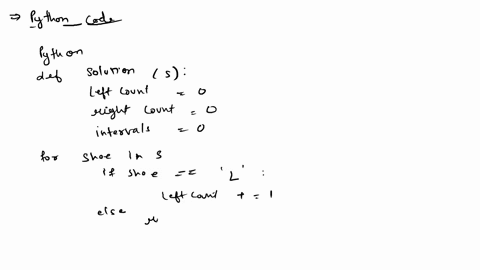 ⇒ Python Code
Python
def solution (s):
left count = 0
right count = 0
intervals = 0
for shoe in s
if shoe == 'L' :
left count + = 1
else